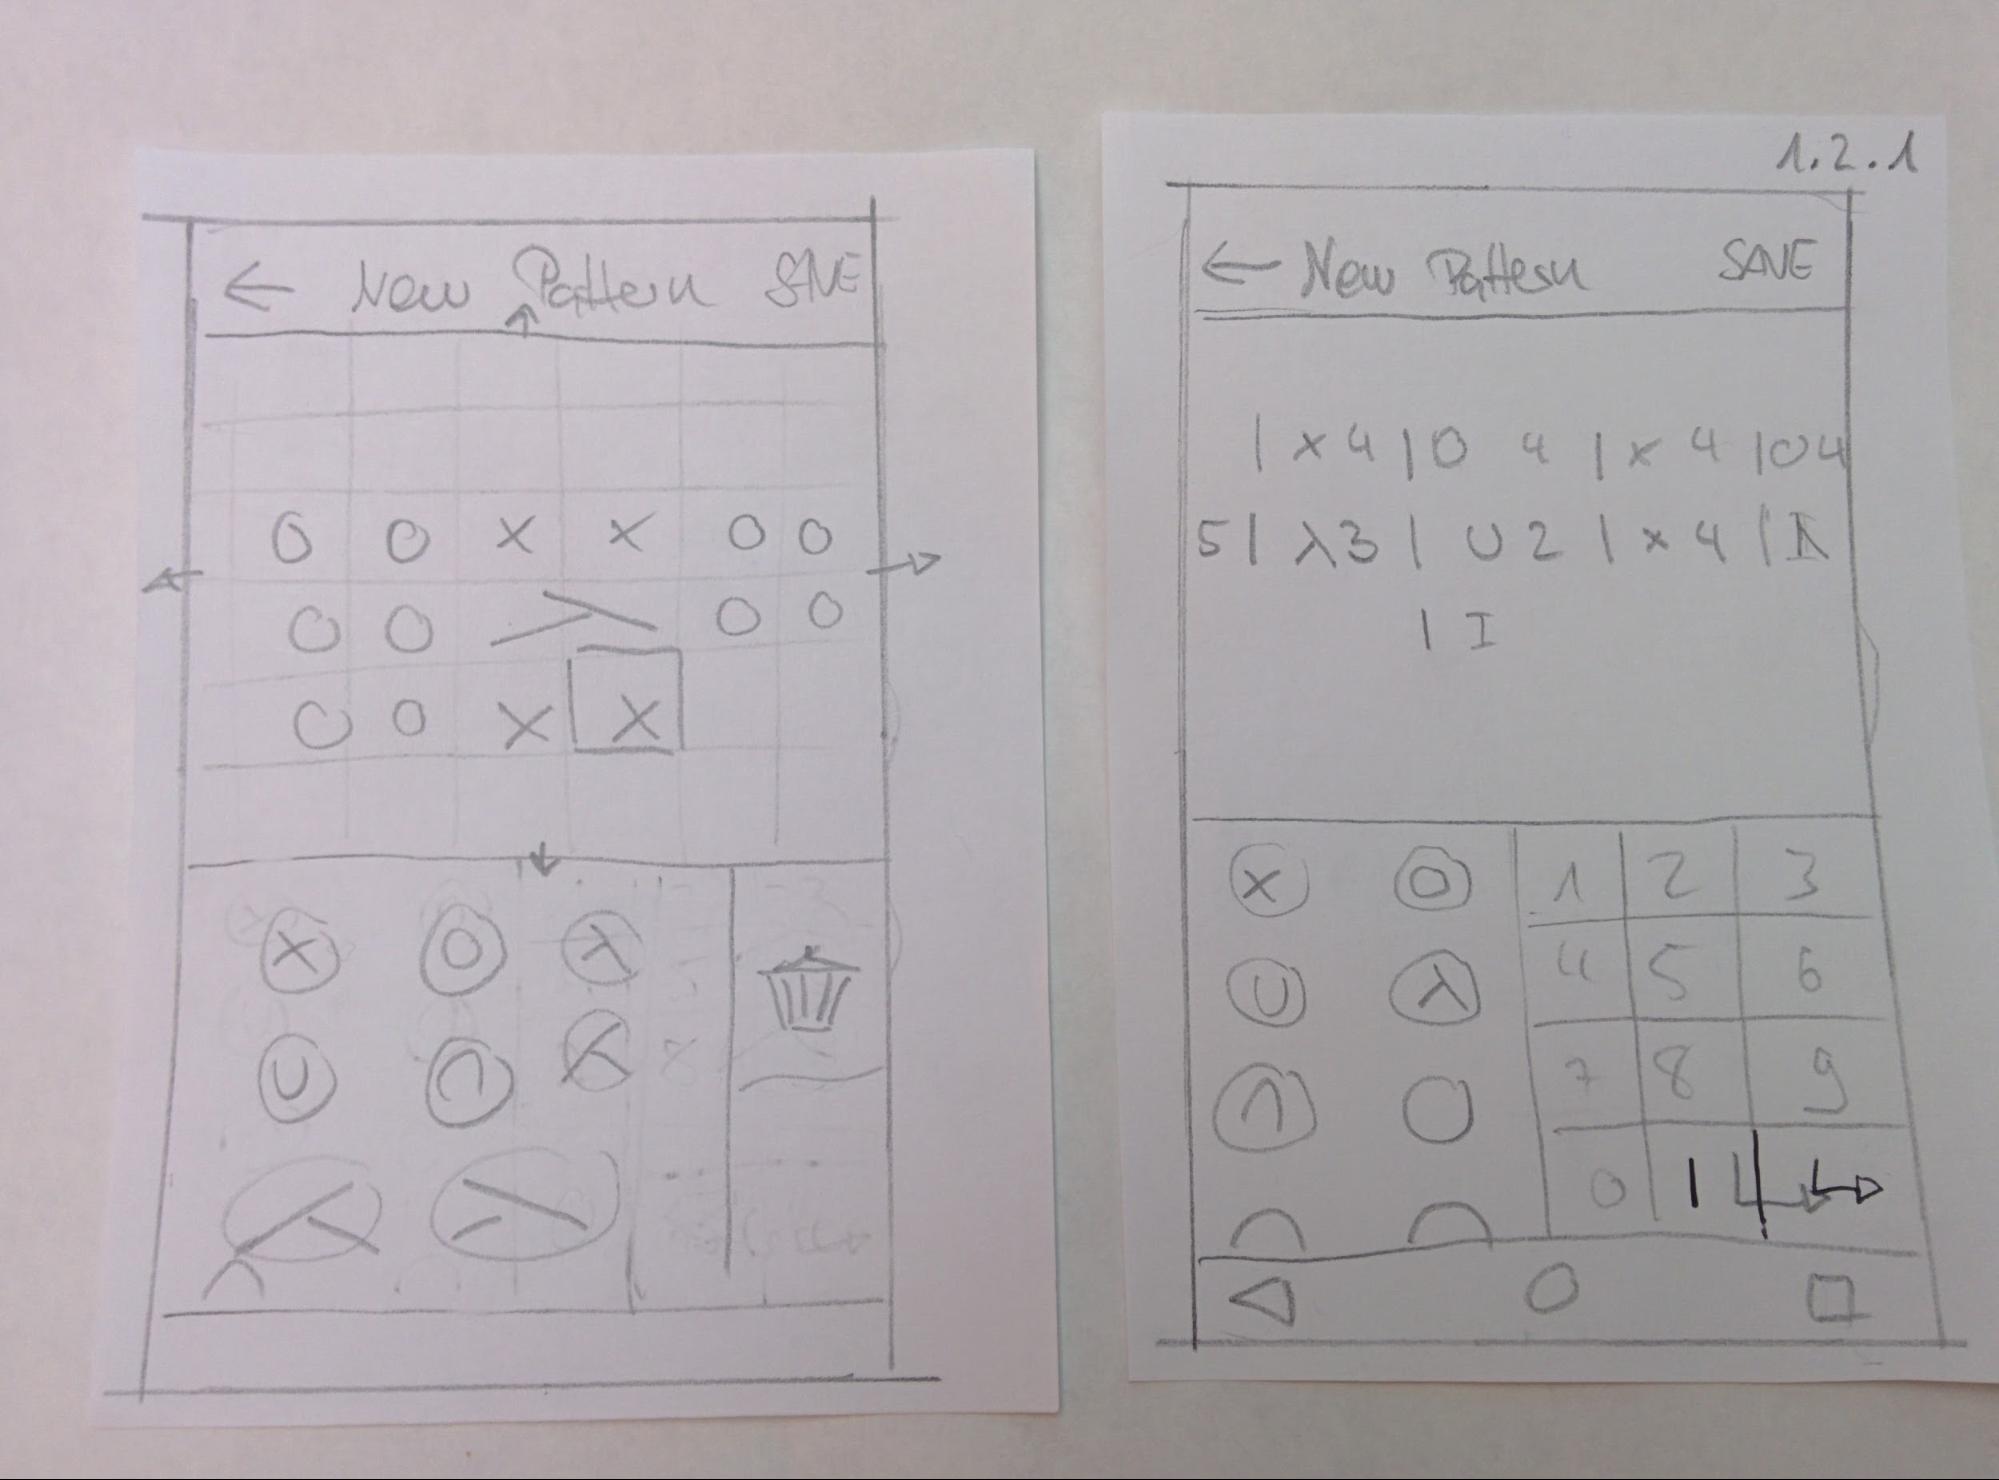 ← New Pattern SAVE
O O X X O O
O O O O
O O X X
X O λ
U ∩
1.2.1
← New Pattern SAVE
| x 4 | O 4 | x 4 | O 4
5 | λ 3 | U 2 | x 4 |
| I
X O 1 2 3
U λ 4 5 6
∩ 7 8 9
0 |